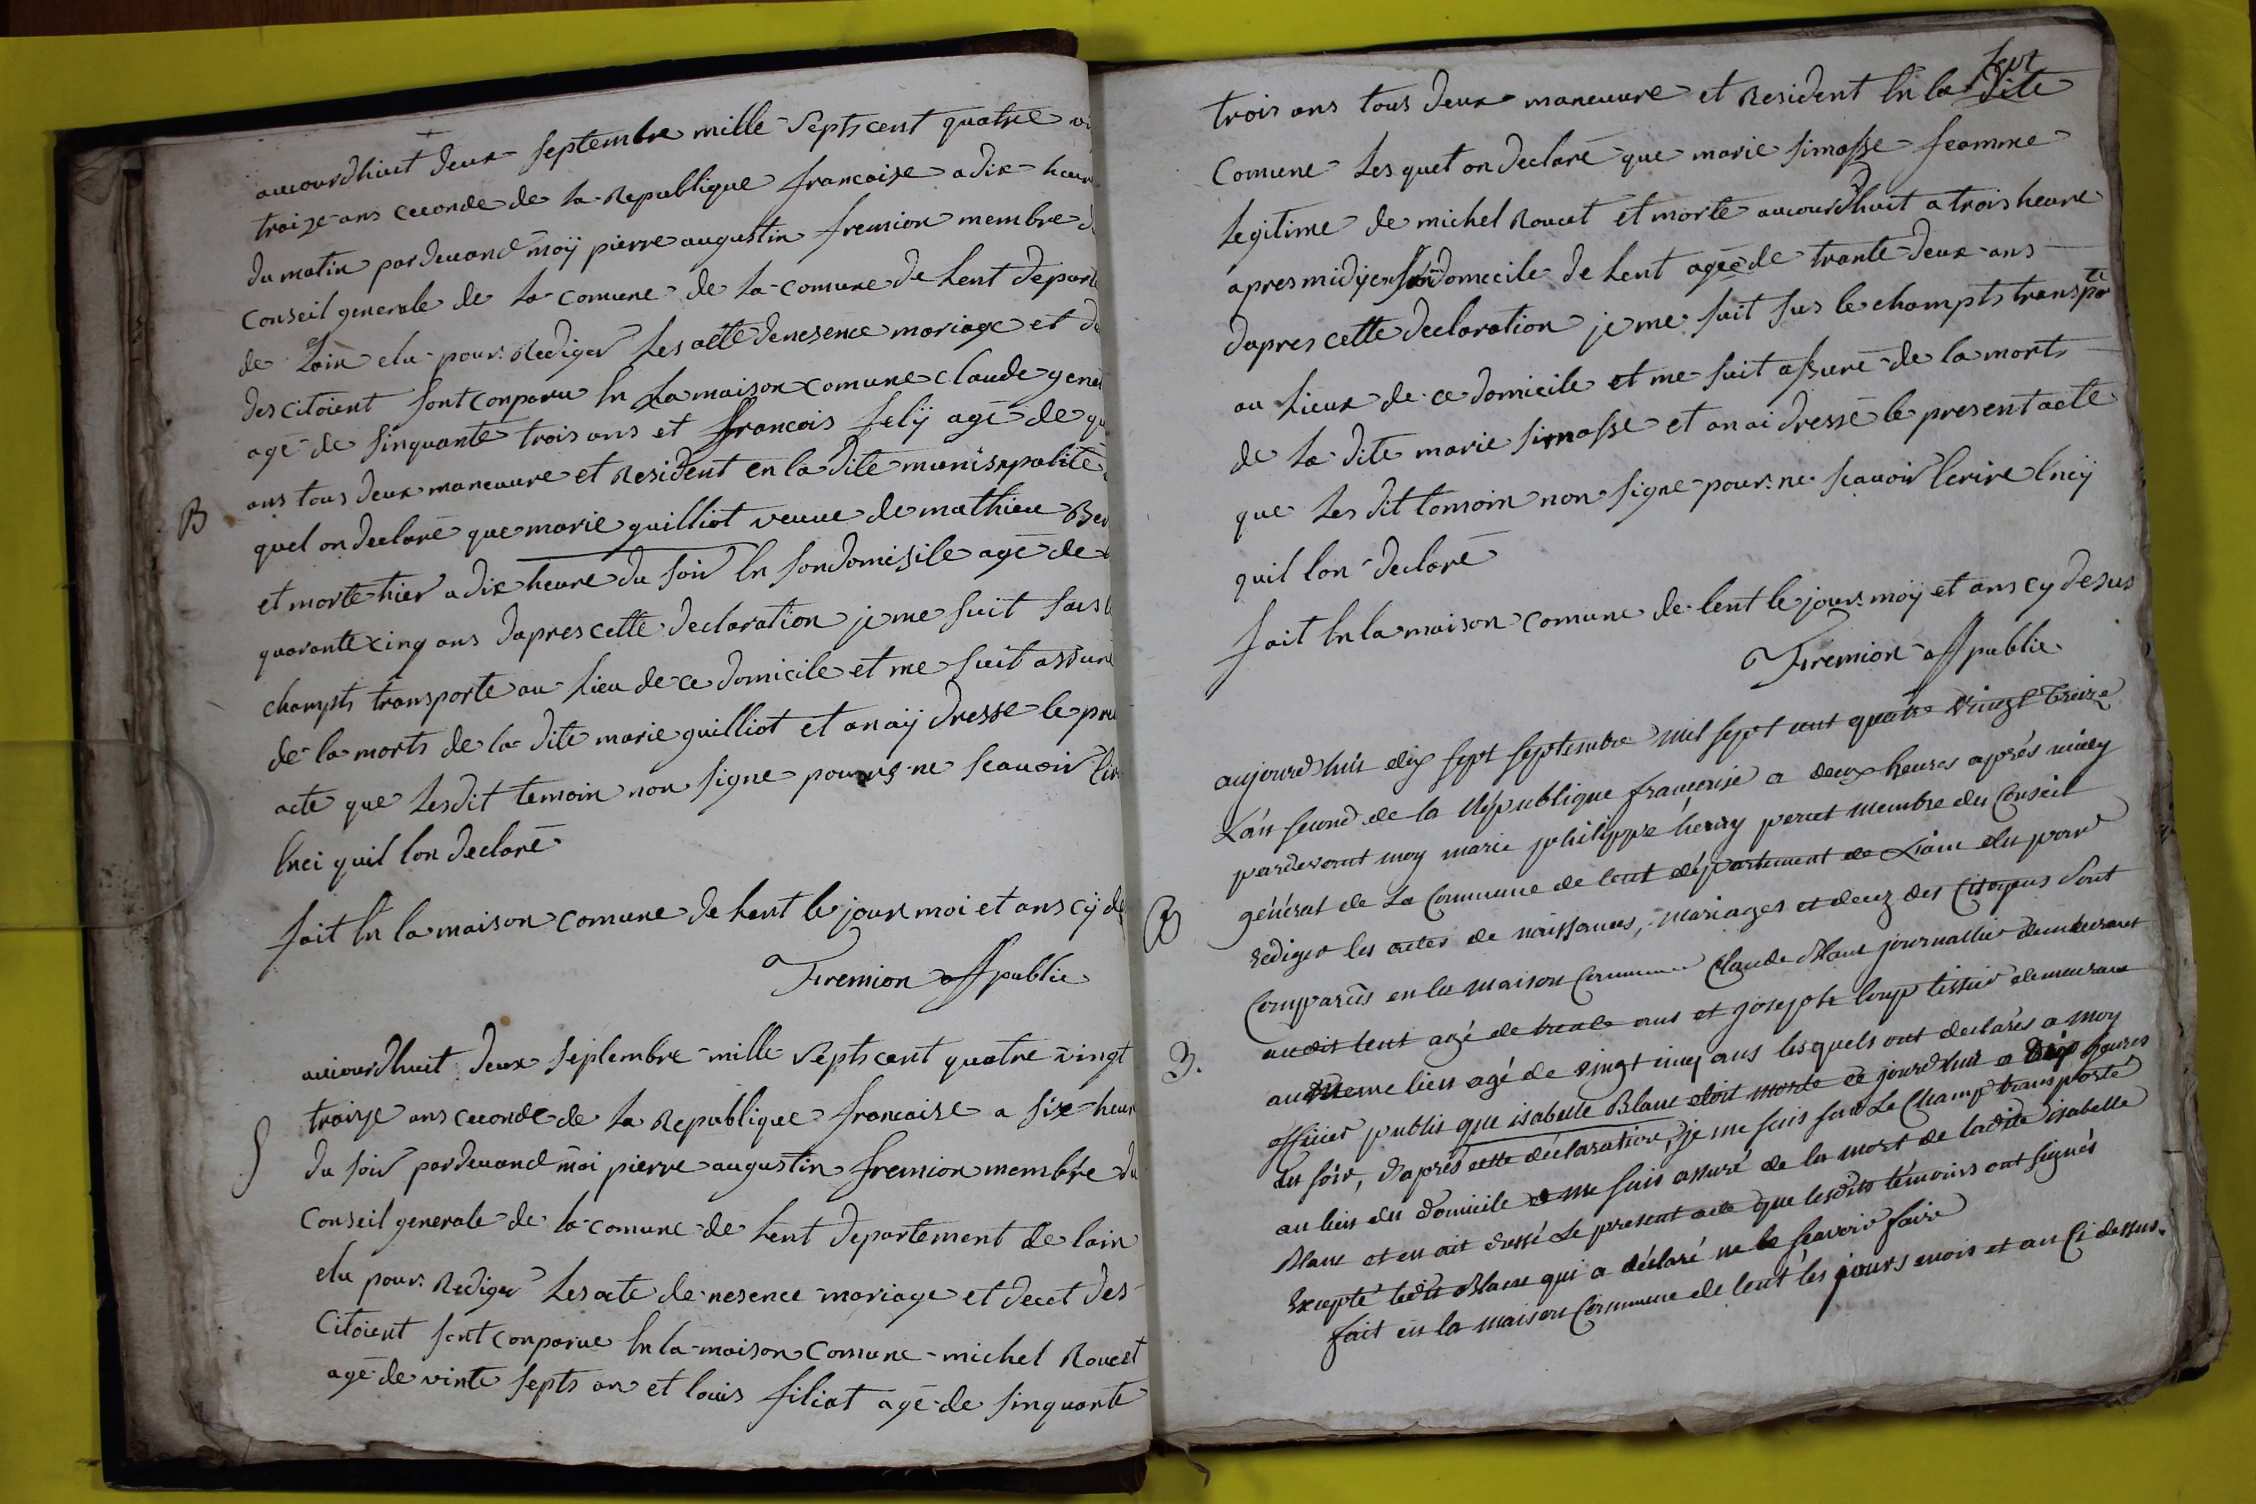 aucourdhuit deux septembre mille septs cent quatre vi
traize ans ceconde de la Republique francoise a dix heur
du matin pardeuand moÿ pierre augustin fremion membre d
Conseil generale de la comune de la comune de Lent depart
de Lain elu pour Rediger Les acte de nesence mariage et d
des citoient sont conparu En La maison comune claude gene
agé de sinquante trois ans et francois felÿ agé de qu
ans tous deux maneuure et Resident en la dite munisypalité
B
quel on declaré que marie guilliot veuue de mathieu Ber
et morte hier a dix heure du soir En son domisile agé de
quarante cinq ans dapres cette declaration je me suit sus l
champts transporte au Lieu de ce domicile et me suit assuré
de la morts de la dite marie guilliot et an aÿ dresse le pre
acte que Lesdit temoin non signe pour ne scauoir Ecr
Enci quil lon declaré
fait En la maison comune de Lent le jour moi et ans cÿ de
Fremion off public
aucourdhuit deux septembre mille septs cent quatre vingt
traize ans ceconde de la Republique francaise a six heur
S
du soir pardeuand moi pierre augustin fremion membre du
Conseil generale de la comune de Lent departement de lain
elu pour Rediger Les acte de nesence mariage et decet des
Citoient sont conparue En la maison Comune michel Rouet
agé de vinte septs an et louis filiat agé de sinquante
Sept
trois ans tous deux maneuure et Resident En la dite
Comune Lesquel on declaré que marie simasse feamme
Legitime de michel Rouet et morte aucourdhuit a trois heure
apres midÿ en son domecile de Lent ageé de trante deux ans
dapres cette declaration je me suit sus le champts transpor té
au Lieux de ce domicile et me suit assuré de la morts
de La dite marie simasse et an ai dressé le present acte
que Les dit tomoin non signe pour ne scauoir Ecrire Encÿ
quil lon declaré
fait En la maison comune de lent le jour moÿ et ans cy desus
Fremion off public
aujourdhui dix sept septembre mil sept cent quatre vingt treize
L'an second de la République françoise a deux heures après midy
pardevant moy marie philippe henry perret membre du Conseil
général de La Commune de lent département de Lain elu pour
B
rediger les actes de naissances, mariages et decez des Citoyens Sont
Comparûs en la maison Commune Claude Blanc journallier demeurant
3.
audit lent agé de trente ans et joseph loup tissier demeurant
au meme lieu agé de vingt cinq ans lesquels ont declarés a moy
officier public que isabelle Blanc etoit morte ce jourdhui a dix heures
du soir, d'après cette déclaration, je me suis sur Le Champ transporté
au lieu du domicile et me suis assuré de la mort de ladite isabelle
Blanc et en ait dressé Le present acte que lesdits témoins ont signés
Excepté ledit Blanc qui a déclaré ne le scavoir faire
fait en la maison Commune de lent les jours mois et an Ci dessus.